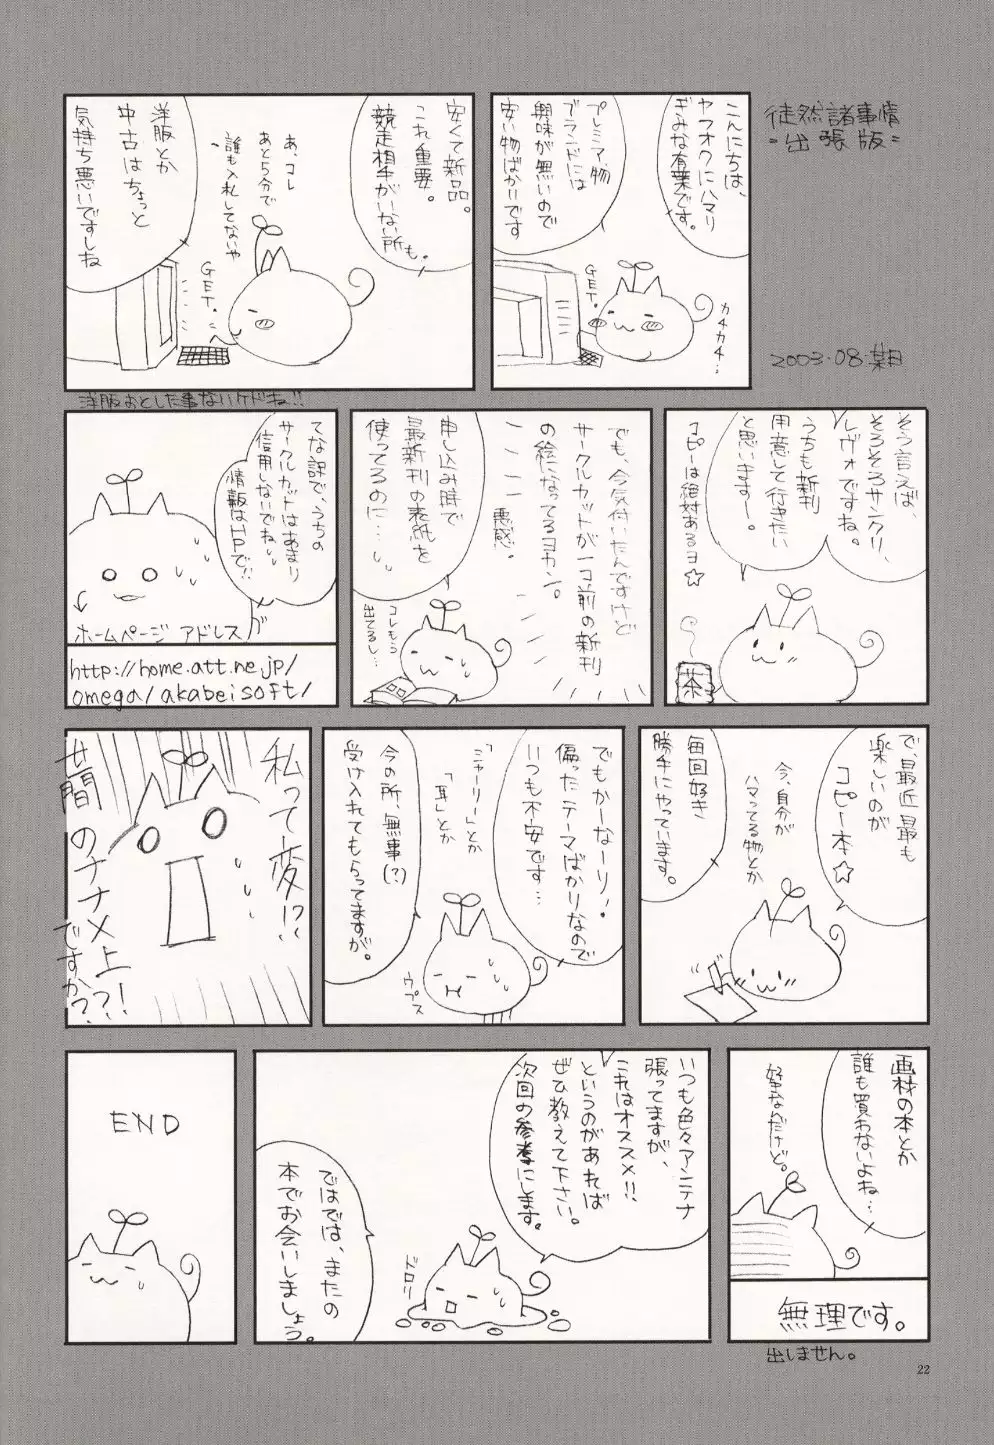 徒然諸事情
=出張版=
2003.08.某日
こんにちは、
ヤフオクにハマり
ぎみな有葉です。
プレミア物
でランドには
興味が無いので
安い物ばかりです
カチカチ…
GET.
安くて新品。
これ重要。
競走相手がいない所も。
あ、コレ
あと5分で
誰も入札してないや
GET.
洋服とか
中古はちょっと
気持ち悪いですしね
洋服おとした事ないケドね!!
そう言えば、
そろそろサンクリ、
レヴォですね。
うちも新刊
用意して行きたい
と思いますー。
コピーは絶対あるヨ☆
茶
でも、今気付いたんですけど
サークルカットが一コ前の新刊
の絵になってるヨカン。
悪感。
申し込み時で
最新刊の表紙を
使ってるのに…
コレもう
出てるし…
てな訳で、うちの
サークルカットはあまり
信用しないでね
情報はHPで!!
ホームページアドレス
http://home.att.ne.jp/
omega/akabeisoft/
で、最近最も
楽しいのが
コピー本☆
今、自分が
ハマってる物とか
毎回好き
勝手にやっています。
でもかーなーりー
偏ったテーマばかりなので
いつも不安です…
「ニャーリー」とか
「耳」とか
今の所、無事(?)
受け入れてもらってますが。
ウプス
私って変!?
世間のナナメ上
ですか??!
画材の本とか
誰も買わないよね…
好きなんだけど。
無理です。
出しません。
いつも色々アンテナ
張ってますが、
これはオススメ!!
というのがあれば
ぜひ教えて下さい。
次回の参考にします。
ドロリ
ではでは、またの
本でお会いしましょう。
END
22